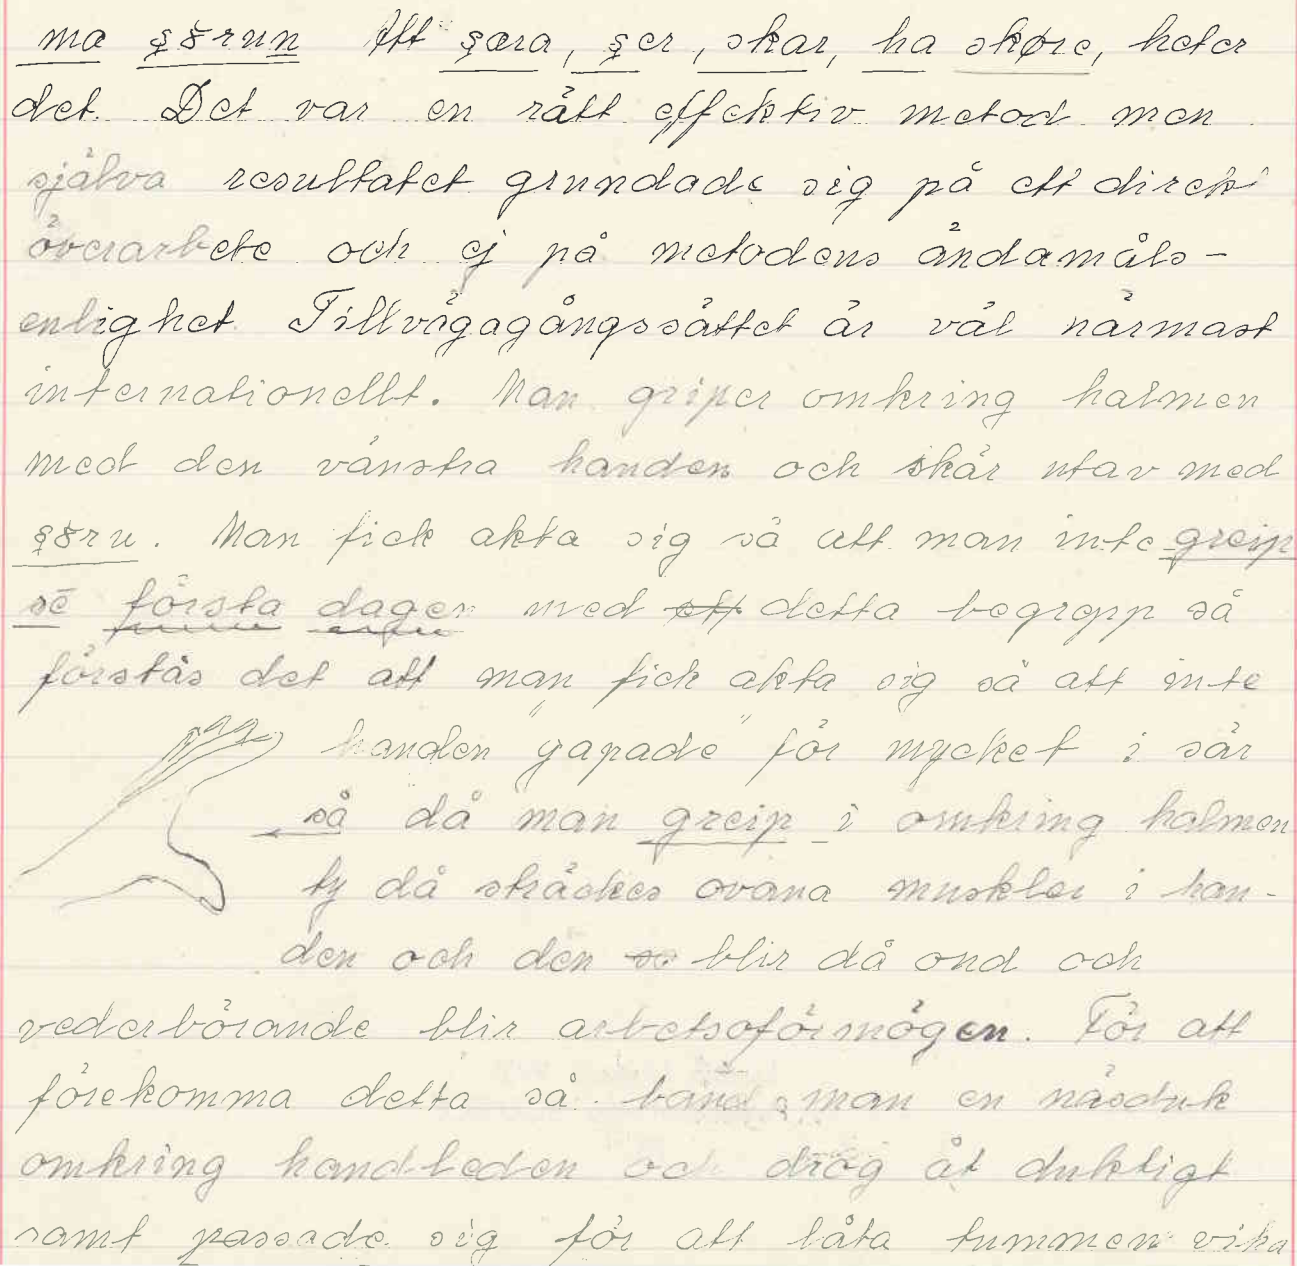 ma §§run Att §æra, §er, skar, ha skøre, heter
det. Det var en rätt effektiv metod men
själva resultatet grundade sig på ett direkt
överarbete och ej på metodens ändamåls-
enlighet Tillvägagångssättet är väl närmast
internationellt. Man griper omkring halmen
med den vänstra handen och skär utav med
§§ru. Man fick akta sig så att man inte greip
sē första dagen med ett detta begrepp så
förstås det att man fick akta sig så att inte
handen "gapade" för mycket i sär
så då man greip i omkring halmen
ty då sträckes ovana muskler i han-
den och den blir då ond och
vederbörande blir arbetsoförmögen. För att
förekomma detta så band man en näsduk
omkring handleden och drog åt duktigt
samt passade sig för att låta tummen vika